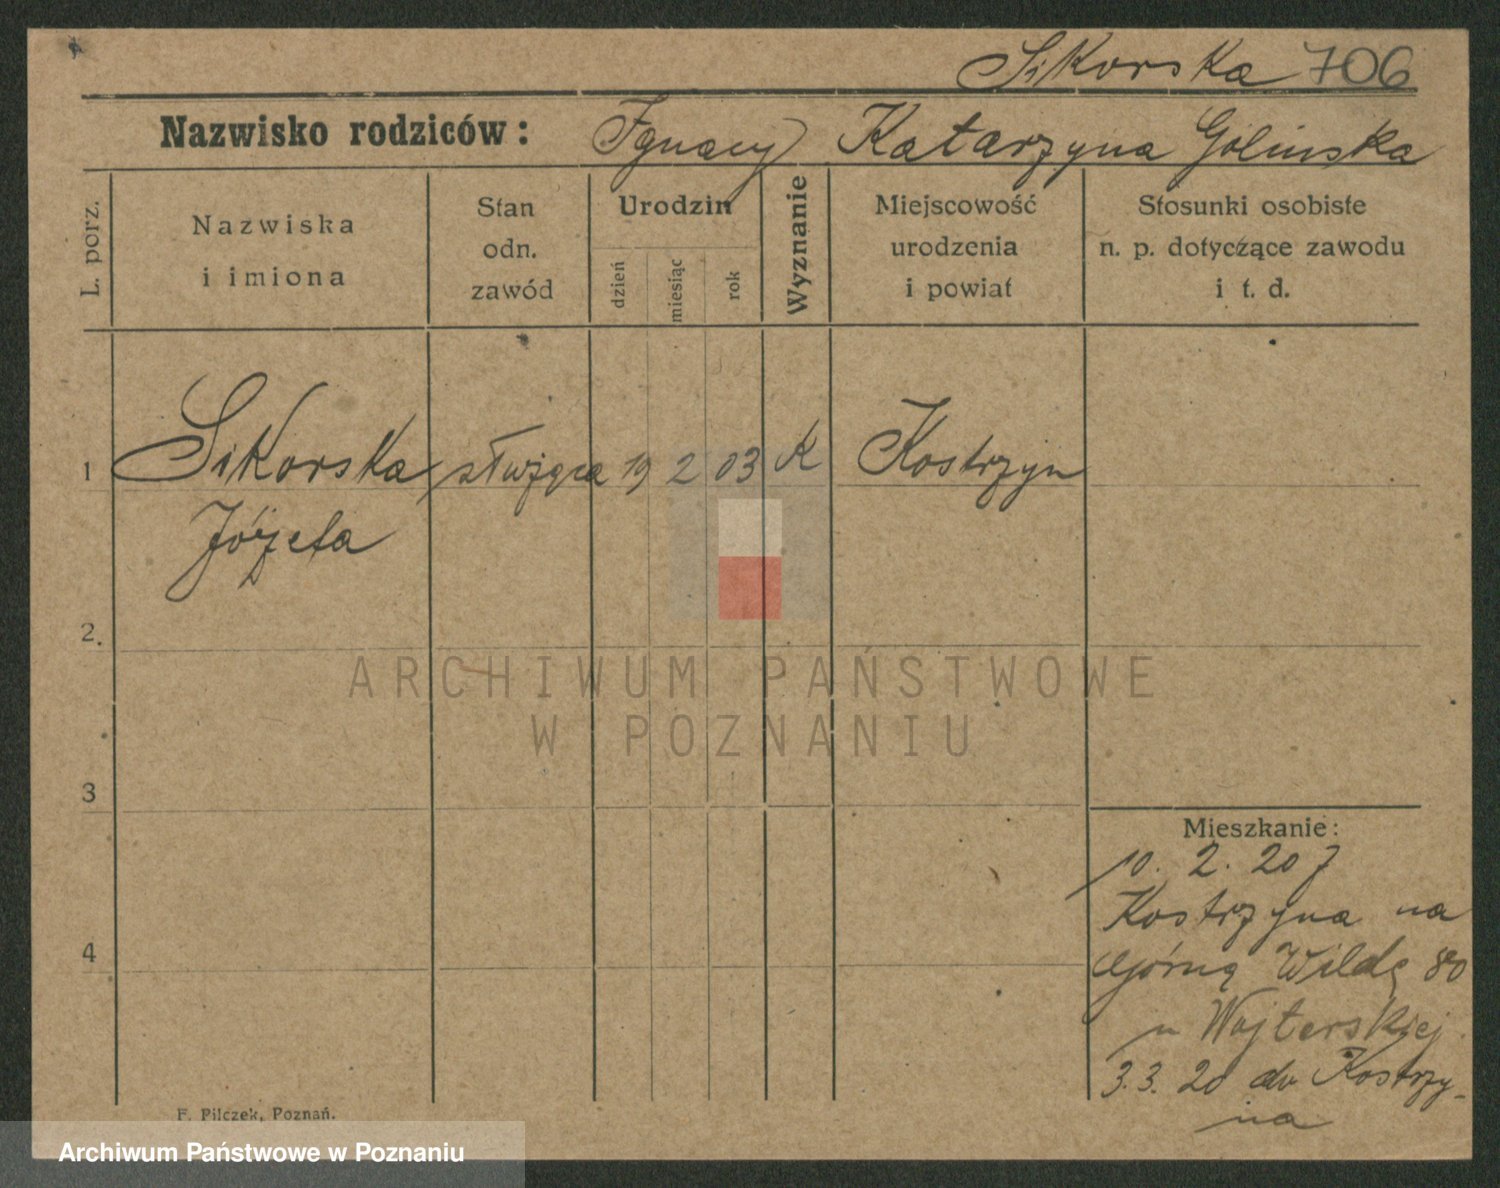 Sikorska 706
Nazwisko rodziców: Ignacy Katarzyna Golinska
L. porz.
Nazwiska
i imiona
Stan
odn.
zawód
Urodzin
dzień
miesiąc
rok
Wyznanie
Miejscowość
urodzenia
i powiat
Stosunki osobiste
n. p. dotyczące zawodu
i t. d.
1 Sikorska służąca 19 2 03 K Kostrzyn
Józefa
2.
3
4
Mieszkanie:
10. 2. 20 z
Kostrzyna na
Górną Wildę 80
u Wojterskiej
3.3. 20 do Kostrzy-
na
F. Pilczek, Poznań.
ARCHIWUM PAŃSTWOWE
W POZNANIU
Archiwum Państwowe w Poznaniu